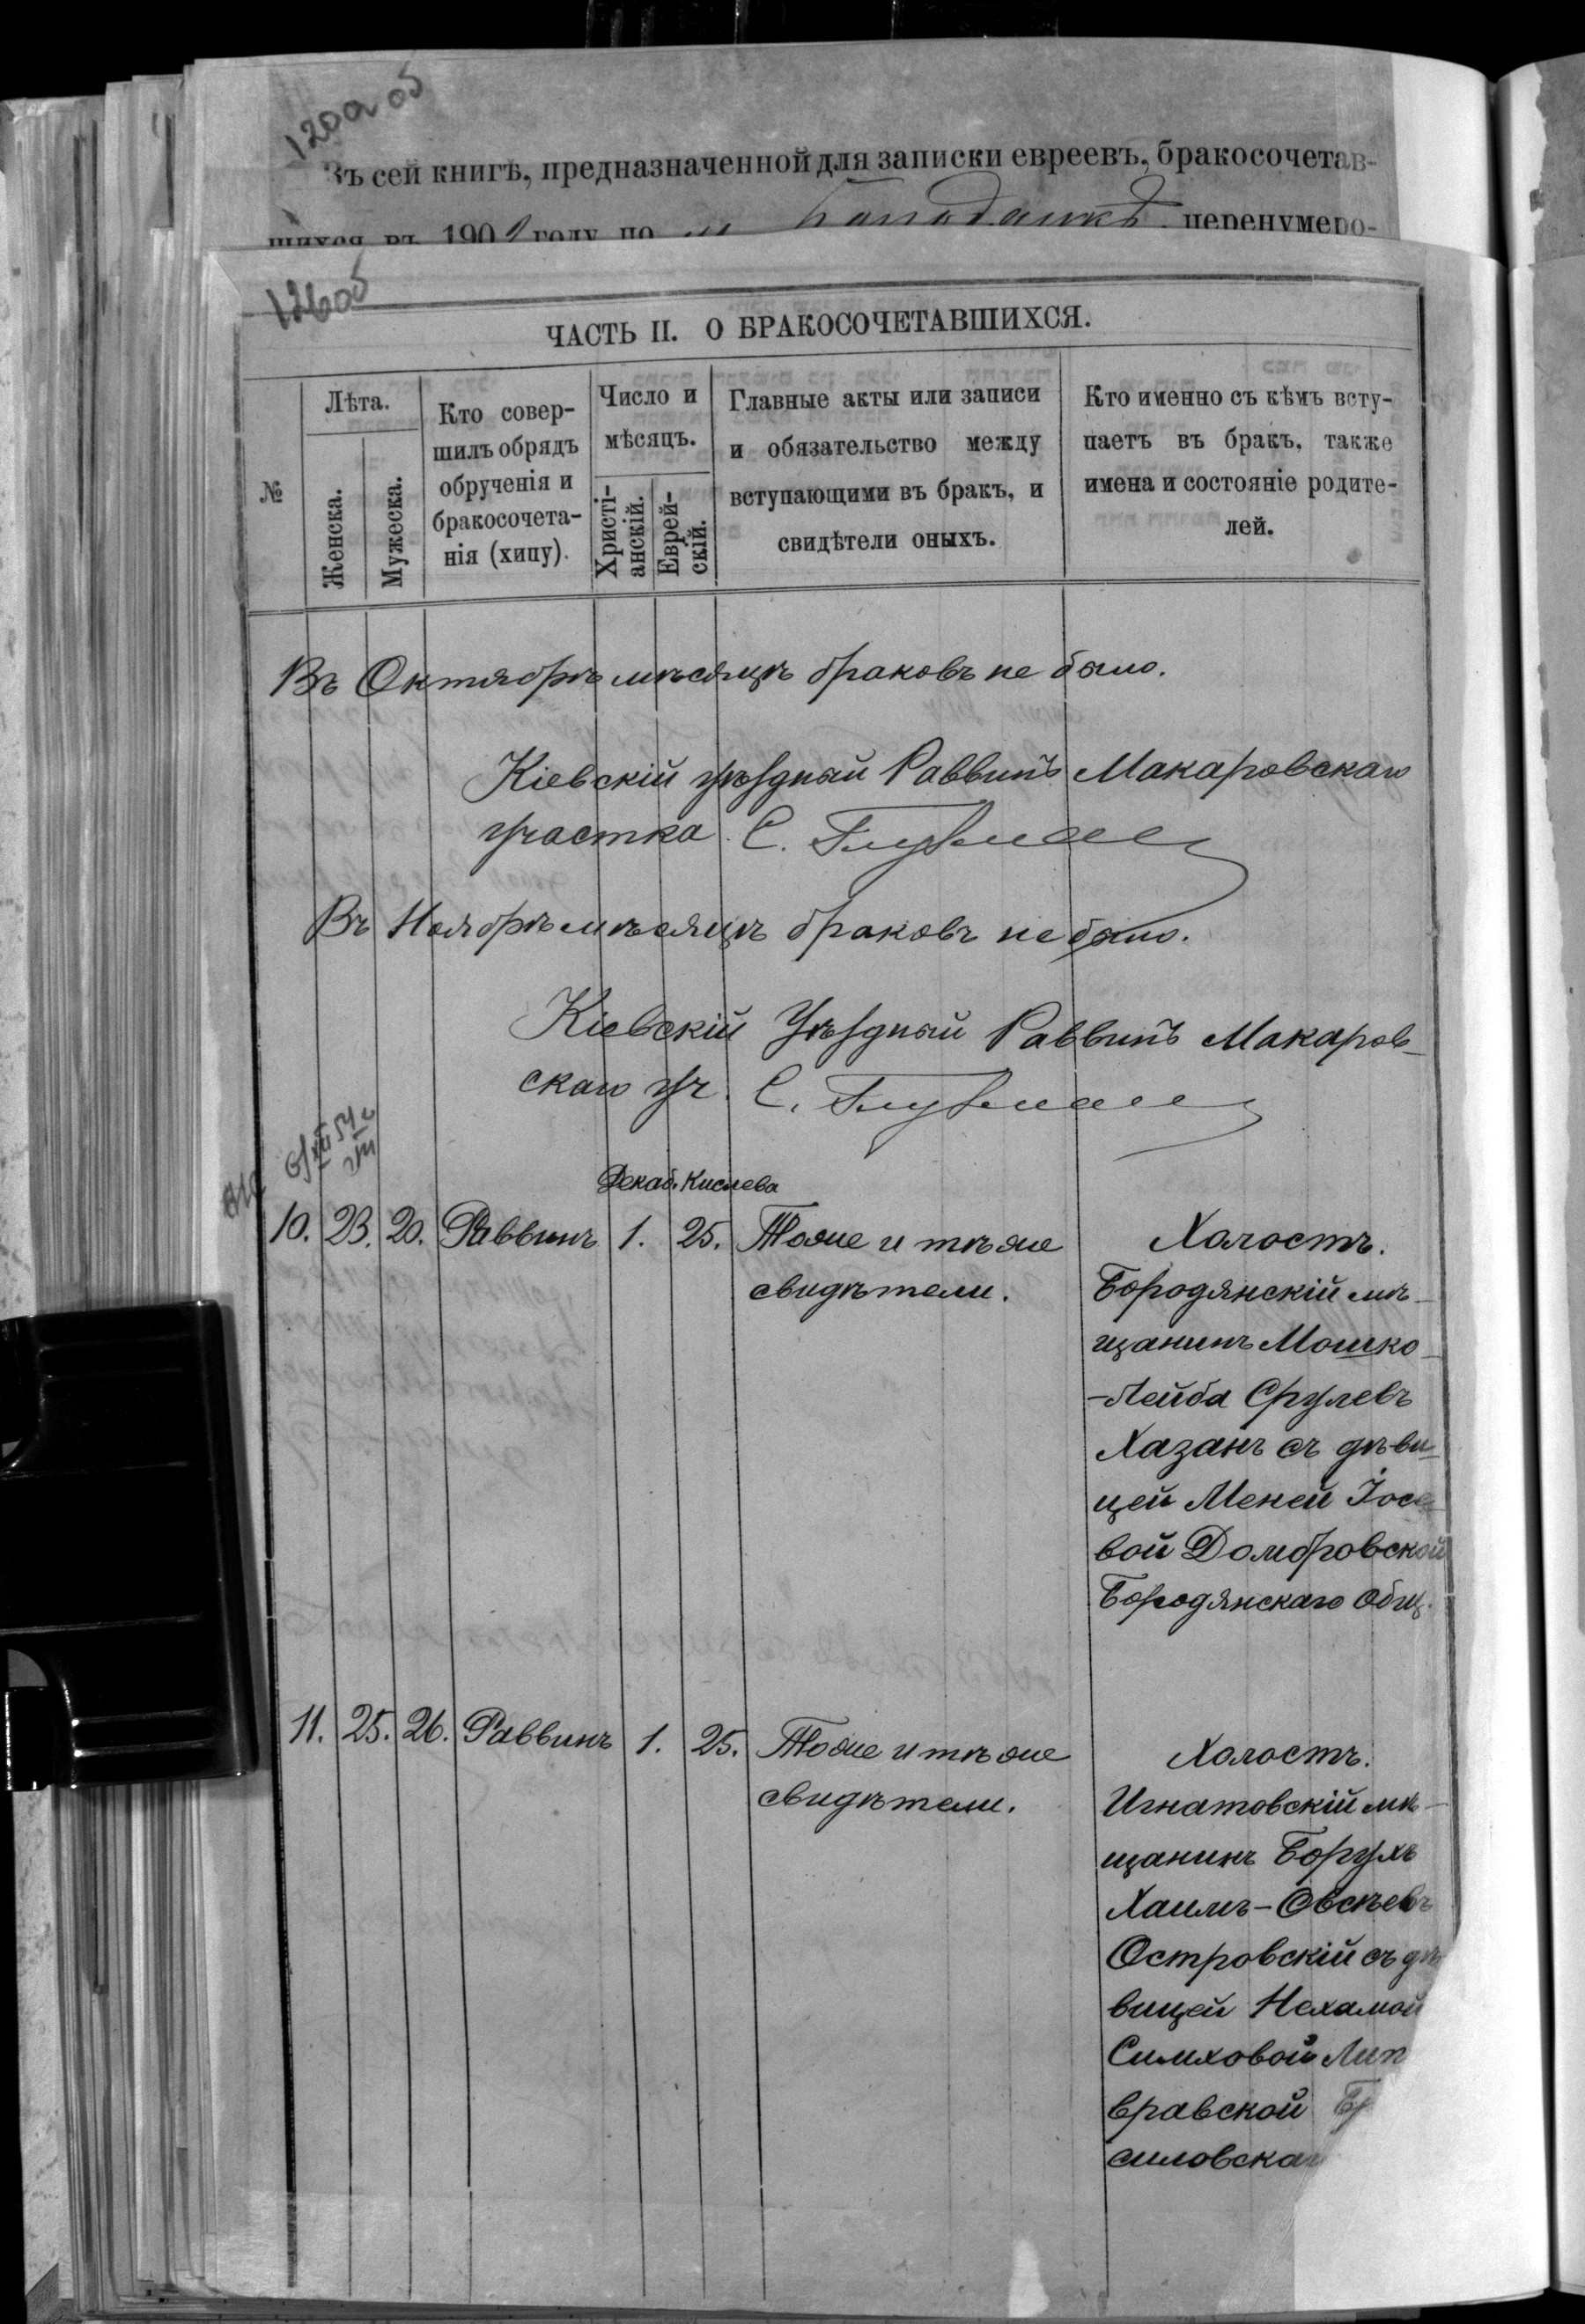 120а об
Въ сей книгѣ, предназначенной для записки евреевъ, бракосочетав-
шихся въ 190 году по м. перенумеро-
126об
ЧАСТЬ II. О БРАКОСОЧЕТАВШИХСЯ.
№
Лѣта.
Женска.
Мужеска.
Кто совер-
шилъ обрядъ
обрученія и
бракосочета-
нія (хипу).
Число и
мѣсяцъ.
Христі-
анскій.
Еврей-
скій.
Главные акты или записи
и обязательство между
вступающими въ бракъ, и
свидѣтели оныхъ.
Кто именно съ кѣмъ всту-
паетъ въ бракъ, также
имена и состояніе родите-
лей.
Въ Октябрѣ мѣсяцѣ браковъ не было.
Кіевскій уѣздный Раввинъ Макаровскаго
участка. С.
Въ Ноябрѣ мѣсяцѣ браковъ не было.
Кіевскій Уѣздный Раввинъ Макаров-
скаго уч. С.
Декаб. Кислева
10. 23. 20. Раввинъ 1. 25. Тоже и тѣ же
свидѣтели.
Холостъ.
Бородянскій мѣ-
щанинъ Мошко-
-Лейба Срулевъ
Хазанъ съ дѣви-
цей Меней Іосе
вой Домбровской
Бородянскаго Общ.
11. 25. 26. Раввинъ 1. 25. Тоже и тѣ же
свидѣтели.
Холостъ.
Игнатовскій мѣ-
щанинъ Борухъ
Хаимъ-Овсѣевъ
Островскій съ дѣ
вицей Нехамой
Симховой Лип
вравской Бр
силовскаг